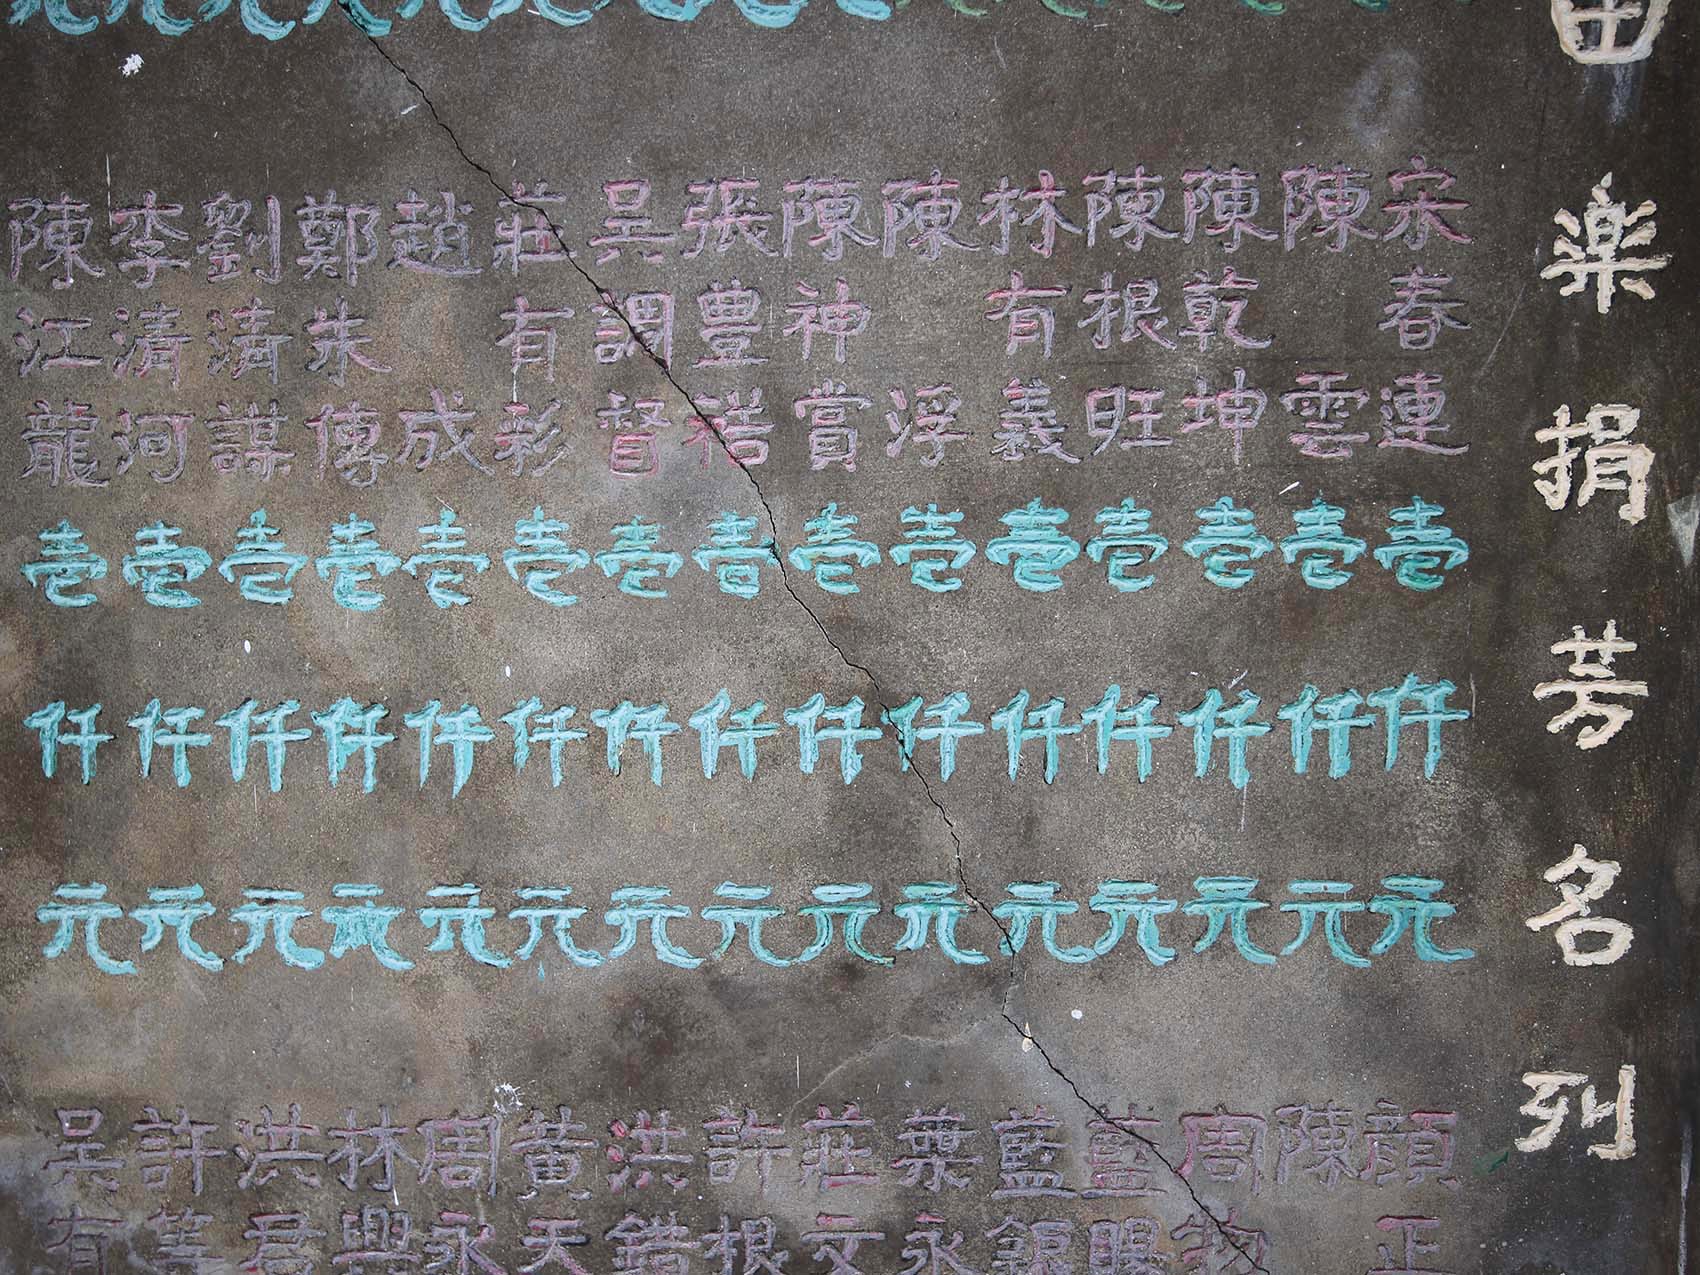 楽捐芳名列
宋春連壹仟元
陳雲壹仟元
陳乾坤壹仟元
陳根旺壹仟元
林有義壹仟元
陳浮壹仟元
陳神賞壹仟元
張豊祿壹仟元
吳調督壹仟元
莊有彩壹仟元
趙成壹仟元
鄭朱傳壹仟元
劉清謀壹仟元
李清河壹仟元
陳江龍壹仟元
顔正
陳
周
藍賜
藍銀
葉永
莊文
許根
洪錯
黄天
周永
林興
洪君
許等
吳有